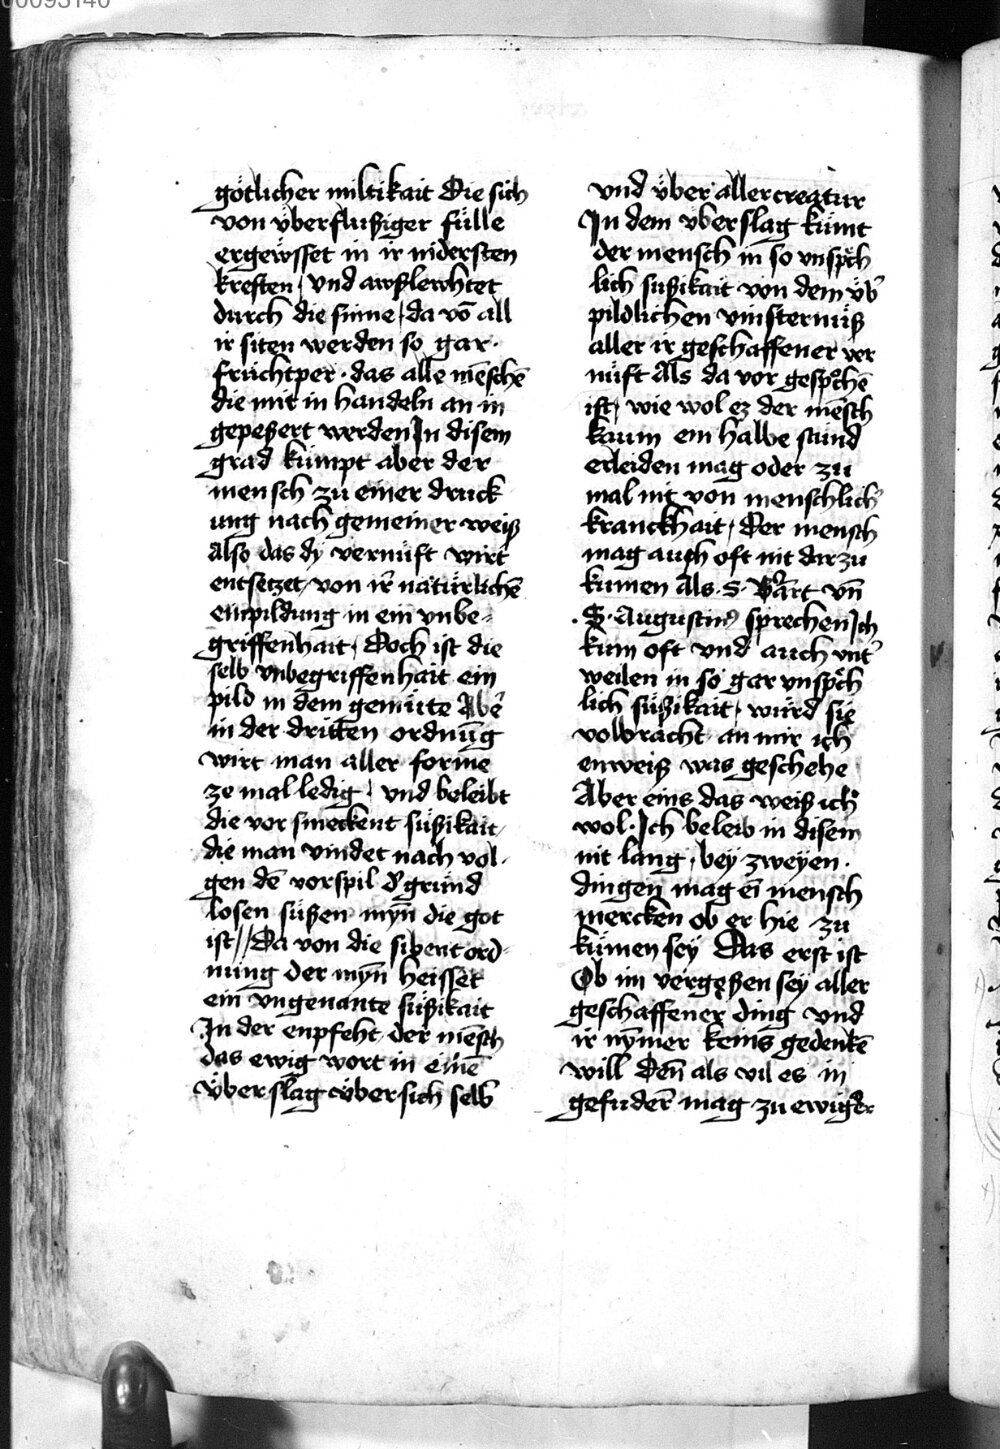 00093140
götlicher miltikait Die sich
von vberflußiger fülle
ergewsset in ir nidersten
kreften / Vnd awßlewhtet
durch die sinne / da vō all
ir siten werden so gar ·
früchtper · das alle mēschē
die mit in handeln an in
gepeßert werden In disem
grad kümpt aber der
mensch zu einer druck
ung nach gemeiner weiß
Also das dy vernüft wirt
entseczet / von ir natürlichē
einpildung in ein vnbe-
griffenhait / Doch ist die
selb vnbegriffenhait ein
pild in dem gemüte Aber
in der dritten ordnūg
wirt man aller forme
ze mal ledig / vnd beleibt
die vor smeckent süßikait /
die man vindet nach vol-
gen dē vorspil d' grund
losen süßen myn die got
ist // Da von die sibent ord-
nung der myn heisset
ein vngenante süßikait
In der enpfeht der mēsch
das ewig wort in einē
Vber slag über sich selb
vnd über aller creatur
In dem vberslag kümt
der mensch in so vnspch
lich süßikait von dem vb'
pildlichen vinsternüß
aller ir geschaffener ver
nüft Als da vor gespochē
ist / wie wol ez der mēsch
kaum ein halbe stund
erleiden mag oder zu
mal nit von menschlich'
kranckhait / Der mensch
mag auch oft nit darzu
kumen Als · S · B'art vn̄
· S · Augustin9 sprechen Ich
kum oft vnd auch vnt'
weilen in so gar vnspch
lich süßikait / würd sie
volbracht an mir ich
enweiß was geschehe
Aber eins das weiß ich
wol · Ich beleib in disem
nit lang / bey zweyen ·
dingen mag eī mensch
mercken ob er hie zu
kümen sey Das erst ist
Ob im vergeßen sey aller
geschaffener ding vnd
ir nymer keins gedenkē
will Den̄ als vil es in
gefuderē mag zu ewiger